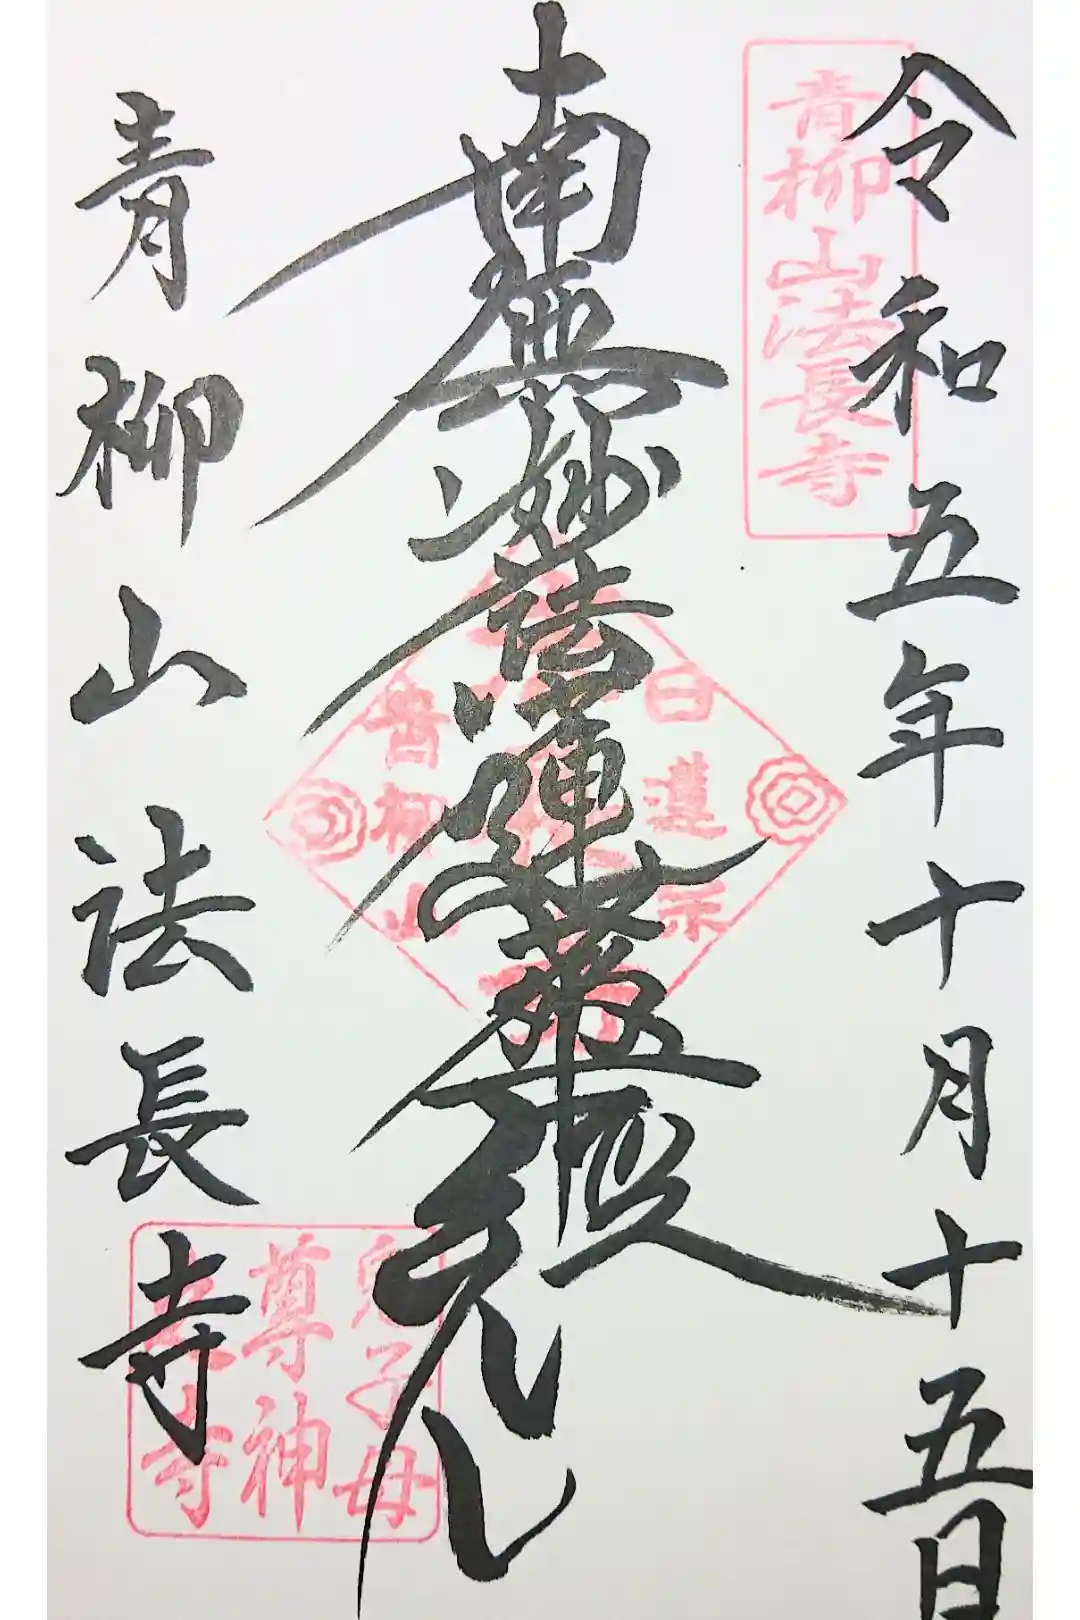 令和五年十月十五日
青柳山法長寺
南無妙法蓮華経
日蓮宗
青柳山
鬼子母
尊神
寺
青柳山法長寺